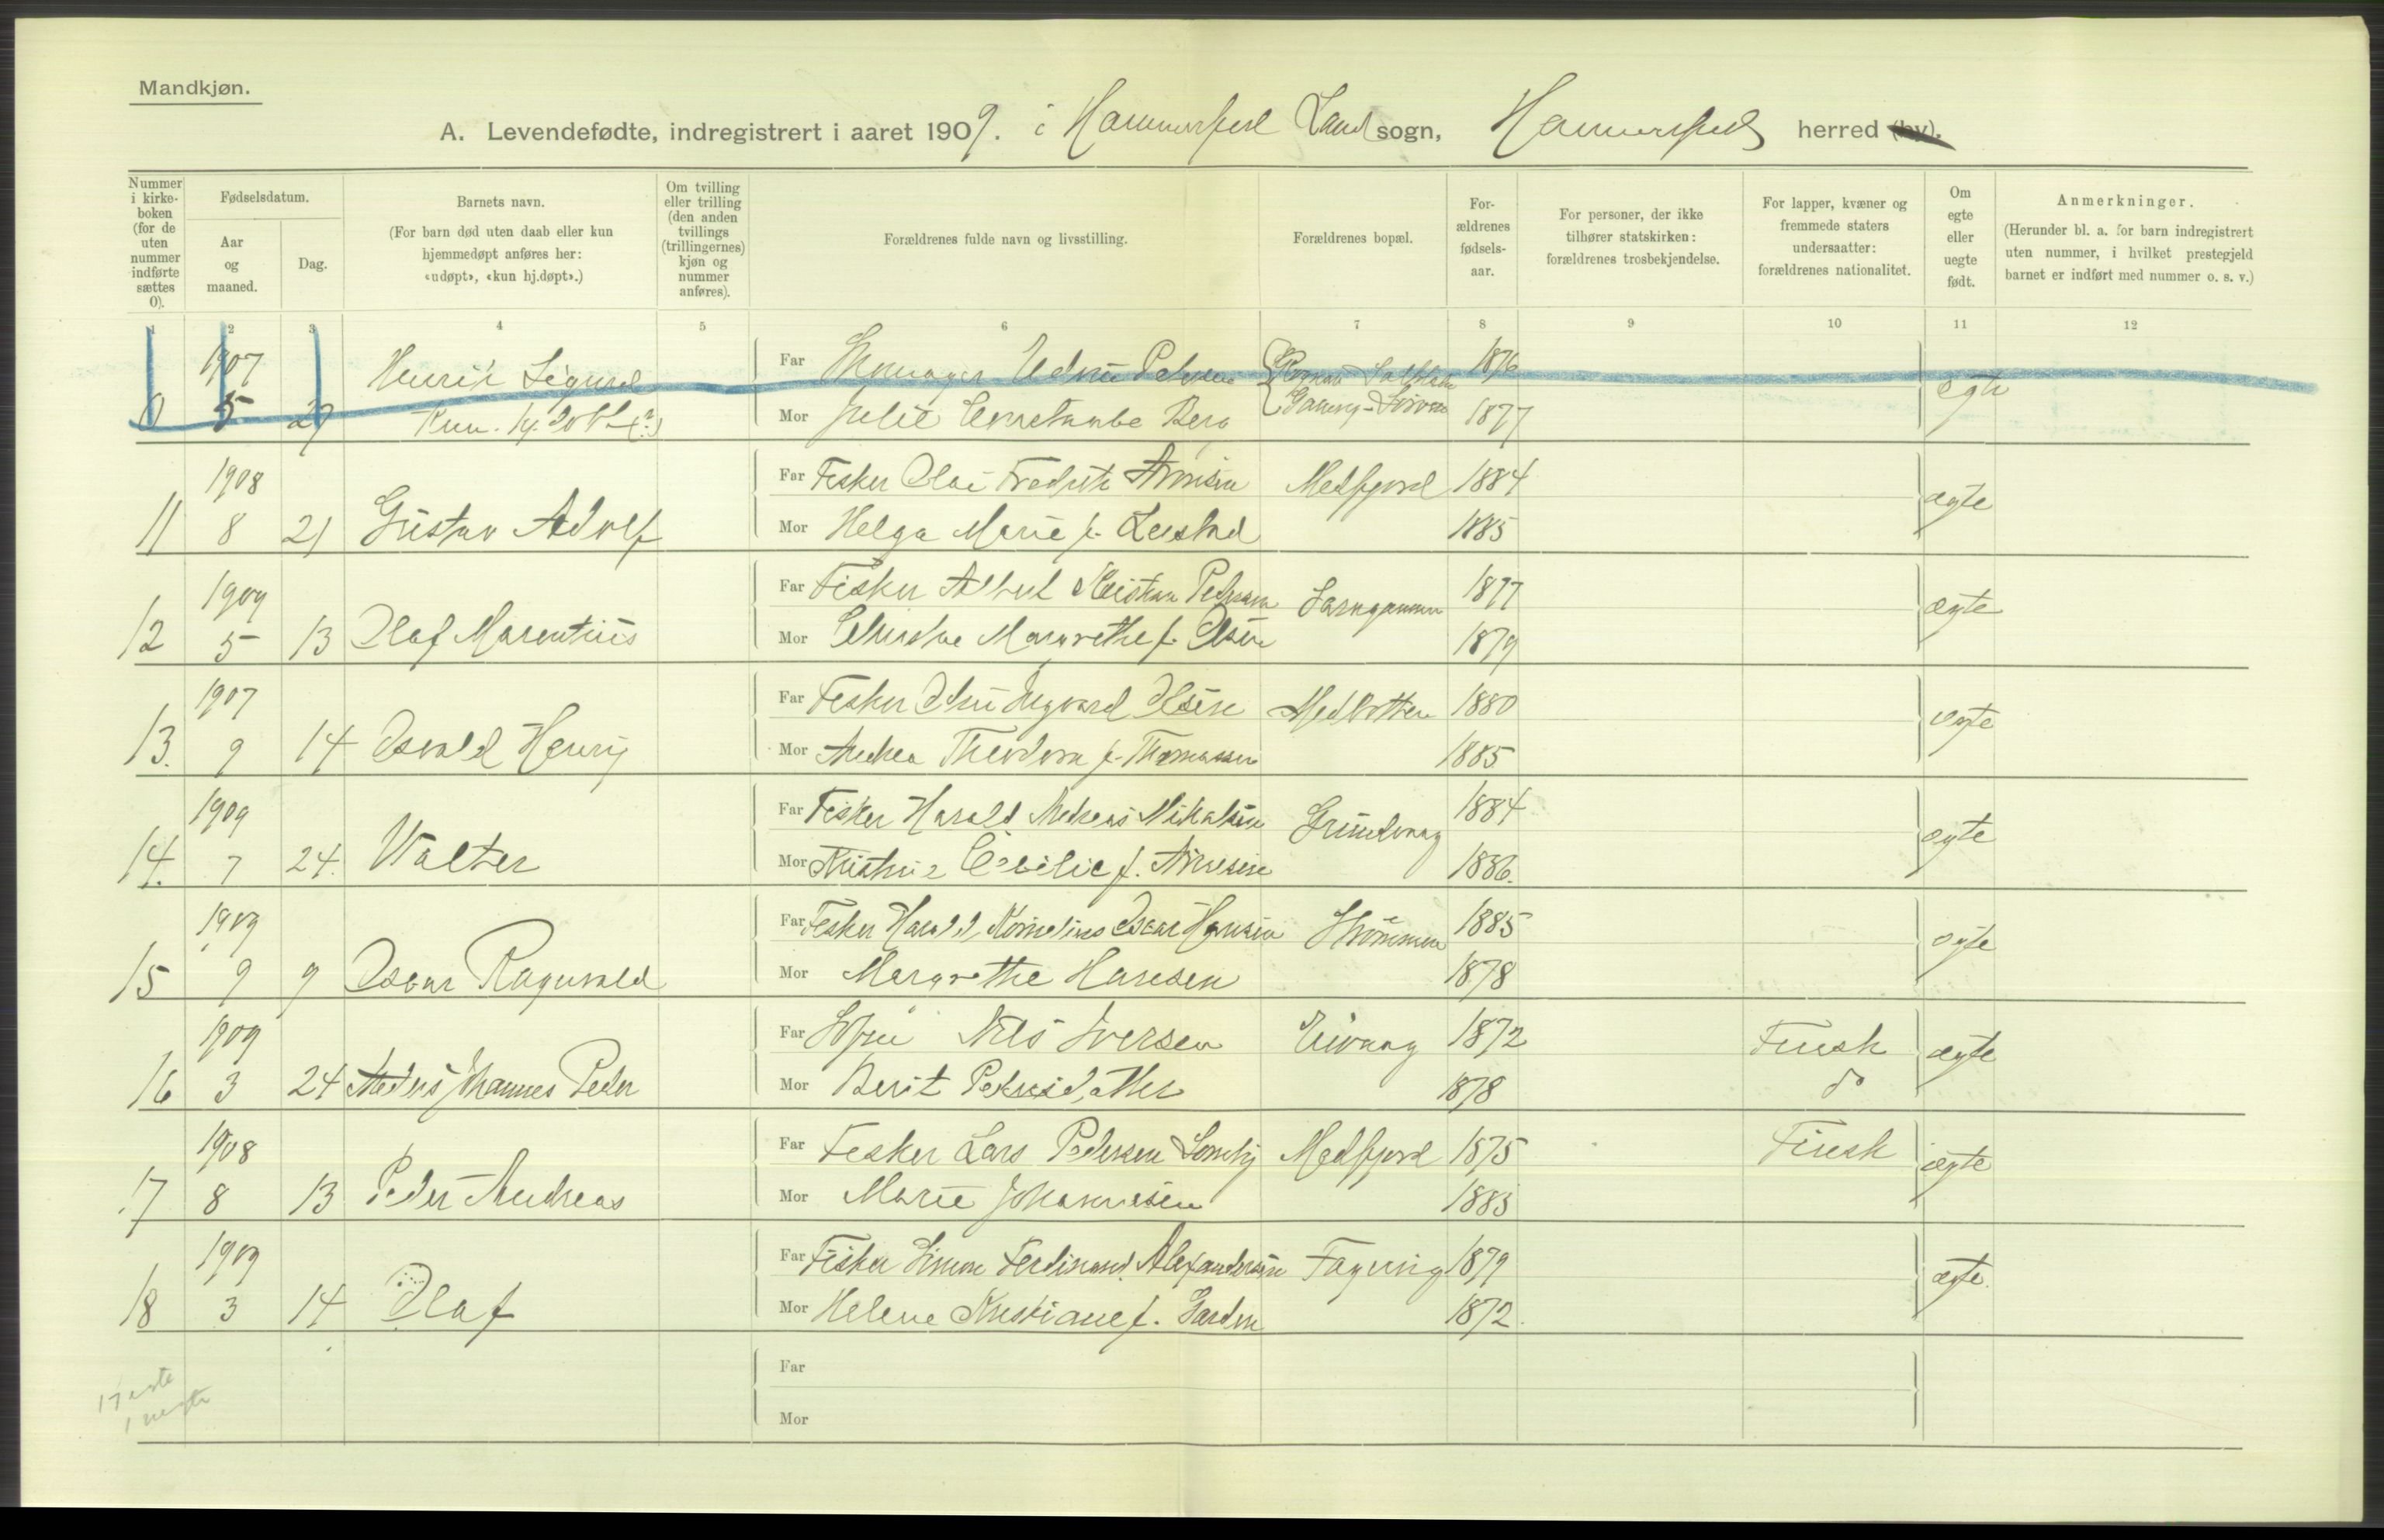 Mandkjøn.
A. Levendefødte, indregistrert i aaret 1909. i Hammerfest Land sogn, Hammerfest herred (by).
Nummer i kirkeboken (for de uten nummer indførte sættes 0).
Fødselsdatum.
Aar og maaned.
Dag.
Barnets navn.
(For barn død uten daab eller kun hjemmedøpt anføres her: «udøpt», «kun hj.døpt».)
Om tvilling eller trilling (den anden tvillings (trillingernes) kjøn og nummer anføres).
Forældrenes fulde navn og livsstilling.
Forældrenes bopæl.
Forældrenes fødselsaar.
For personer, der ikke tilhører statskirken: forældrenes trosbekjendelse.
For lapper, kvæner og fremmede staters undersaatter: forældrenes nationalitet.
Om egte eller uegte født.
Anmerkninger.
(Herunder bl. a. for barn indregistrert uten nummer, i hvilket prestegjeld barnet er indført med nummer o. s. v.)
1 2 3 4 5 6 7 8 9 10 11 12
1907 Henrik Sigurd Far Edvin Pedersen 1876
0 5 27 Mor Julie Berg 1877 egte
1908 Far Fisker Olai Fredrik Arnisen Medfjord 1884
11 8 21 Gustav Adolf Mor Helga Marie f. 1885 ægte
1909 Far Fisker Albert Kristian Pedersen 1877
12 5 13 Olaf Marentius Mor Margrethe f. Olsen 1879 ægte
1907 Far Fisker Ingvard Olsen Medbotten 1880
13. 9 14 Osvald Henry Mor Andrea Theodora f. Thomassen 1885 egte
1909 Far Fisker Harald Andreas Mikalsen Grundvaag 1884
14. 7 24. Walter Mor Kristine Cecilie f. 1886. ægte
1909 Far Fisker Harald Kornelius Oscar Hansen Strømmen 1885
15 9 9 Oscar Ragnvald Mor Margrethe Hansen 1878 egte
1909 Far Nils Iversen 1872 Finsk
16 3 24 Anders Johannes Peder Mor Berit Pedersdatter 1878 do ægte
1908 Far Fisker Lars Pedersen Medfjord 1875 Finsk
17 8 13 Peder Andreas Mor Marie Johannesen 1883 ægte
1909 Far Fisker Simon Ferdinand Alexandersen 1879
18 3 14 Olaf Mor Helene Kristiane f. 1872. ægte.
Far
17 egte
1 uegte
Mor